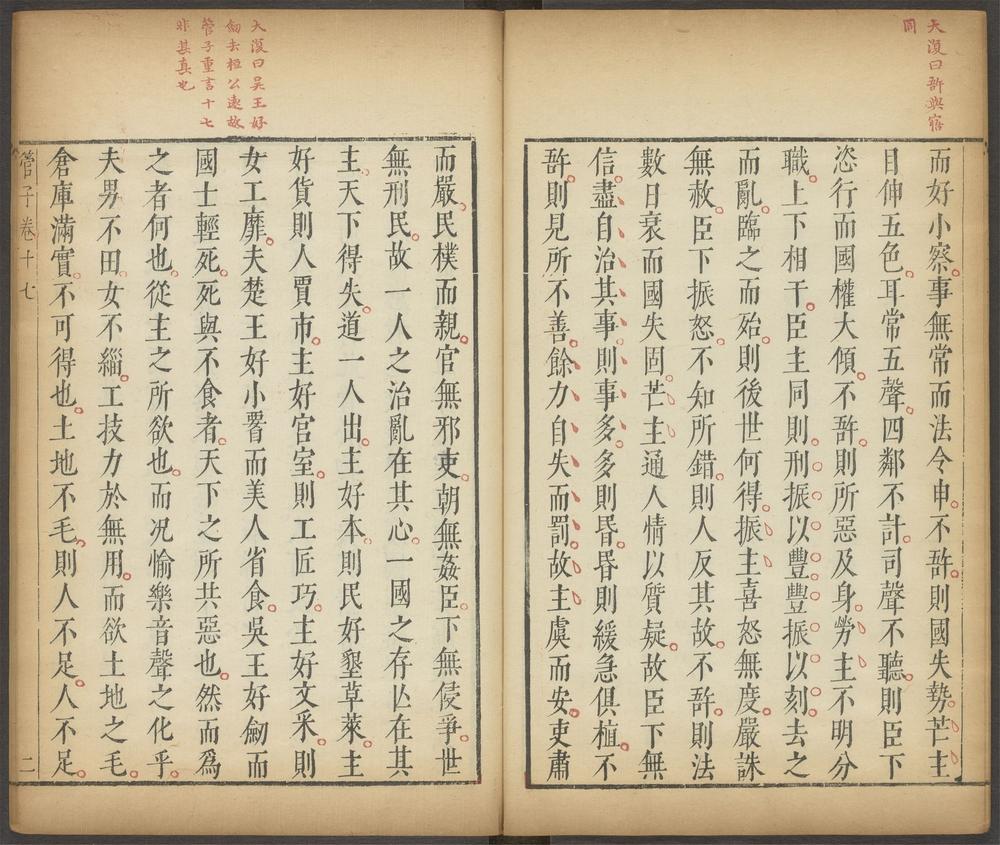 大復曰許與寤
同
而好小察事無常而法令申不許則國失勢芒主
目伸五色耳常五聲四鄰不計司聲不聽則臣下
恣行而國權大傾不許則所惡及身勞主不明分
職上下相干臣主同則刑振以豐豐振以刻去之
而亂臨之而殆則後世何得振主喜怒無度嚴誅
無赦臣下振怒不知所錯則人反其故不許則法
數日衰而國失固芒主通人情以質疑故臣下無
信盡自治其事則事多多則昬昬則緩急俱植不
許則見所不善餘力自失而罰故主虞而安吏肅
大復曰吳王好
劒去桓公遠故
管子重言十七
非其真也
而嚴民樸而親官無邪吏朝無姦臣下無侵爭世
無刑民故一人之治亂在其心一國之存亾在其
主天下得失道一人出主好本則民好墾草萊主
好貨則人賈市主好宮室則工匠巧主好文采則
女工靡夫楚王好小而美人省食吳王好劒而
國士輕死死與不食者天下之所共惡也然而爲
之者何也從主之所欲也而况愉樂音聲之化乎
夫男不田女不緇工技力於無用而欲土地之毛
倉庫滿實不可得也土地不毛則人不足人不足
管子卷十七 二